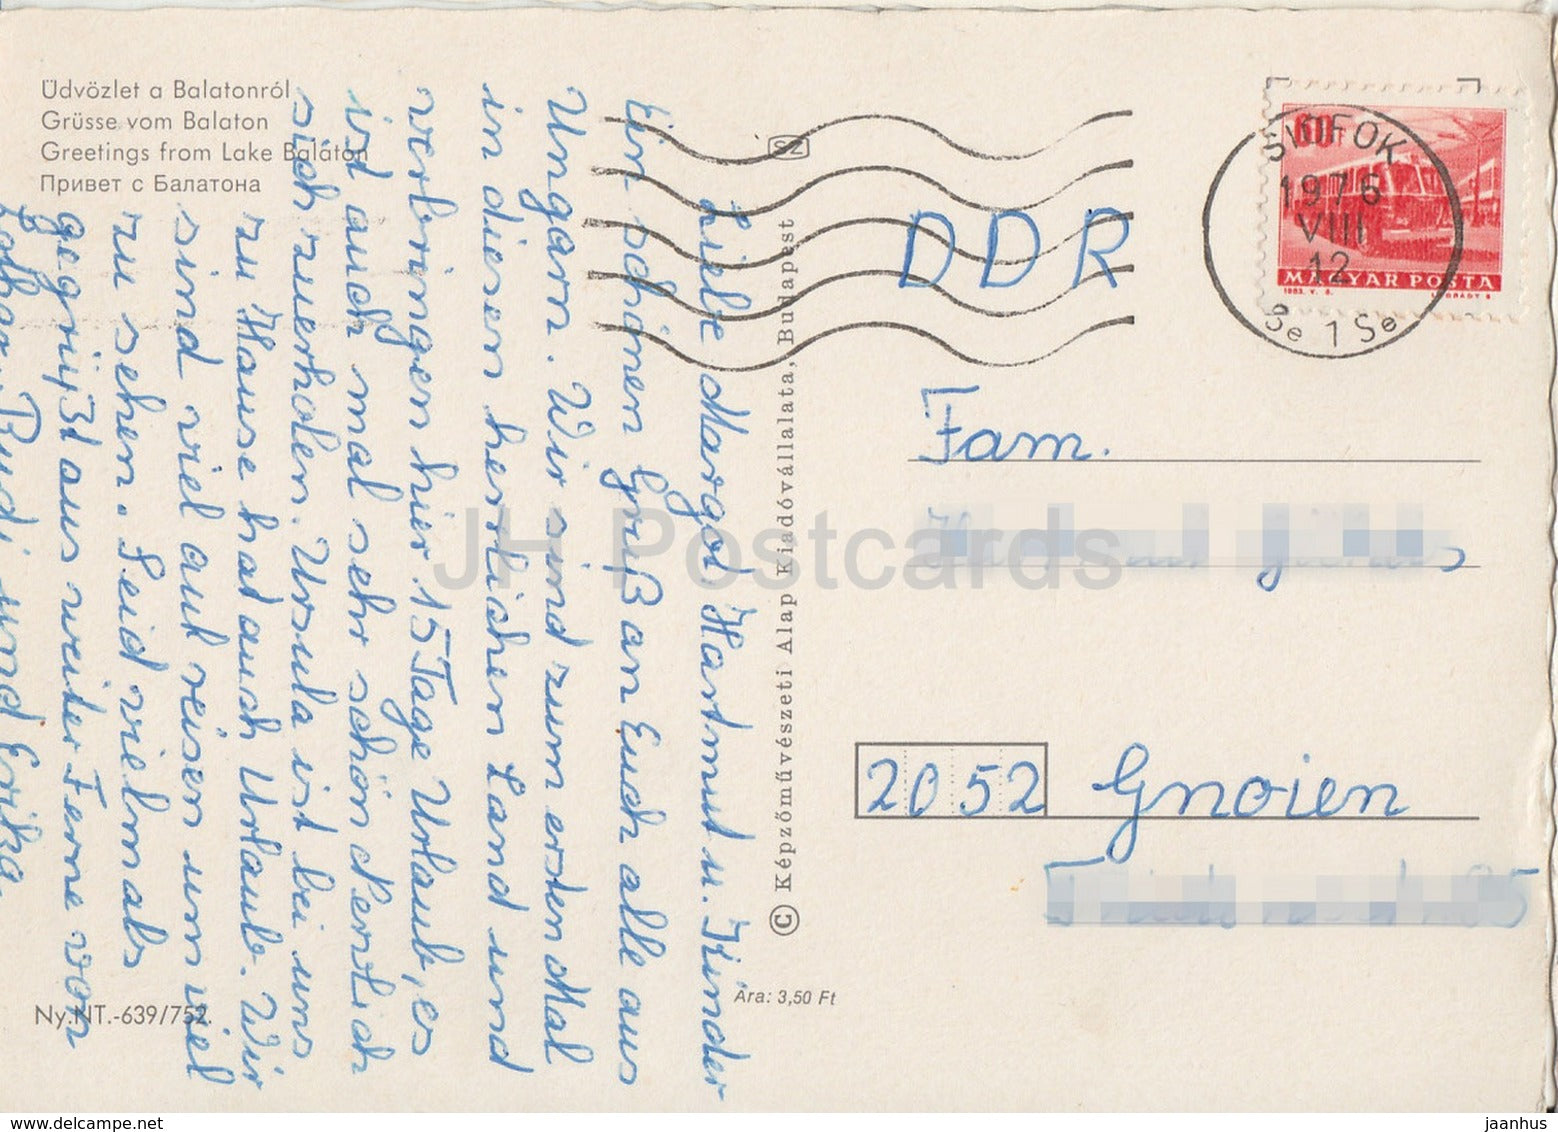 Üdvözlet a Balatonról
Grüsse vom Balaton
Greetings from Lake Balaton
Привет с Балатона
Liebe Margot, Hartmut u. Kinder
Ein schönen Gruß an Euch alle aus
Ungarn. Wir sind zum ersten Mal
in diesen herlichen Land und
verbringen hier 15 Tage Urlaub, es
ist auch mal sehr schön sich
sich zuerholen. Ursula ist bei uns
zu Hause hat auch Urlaub. Wir
sind viel auf reisen um viel
zu sehen. Seid vielmals
gegrüßt aus weiter Ferne von
Rudi und Erika.
Ny.NT.-639/752.
Ára: 3,50 Ft
© Képzőművészeti Alap Kiadóvállalata, Budapest
SZ
60
MAGYAR POSTA
1963. V. 8.
SIÓFOK
1976
VIII
12
8e 1 Se
DDR
Fam.
2052 Gnoien
JH Postcards
jaanhus